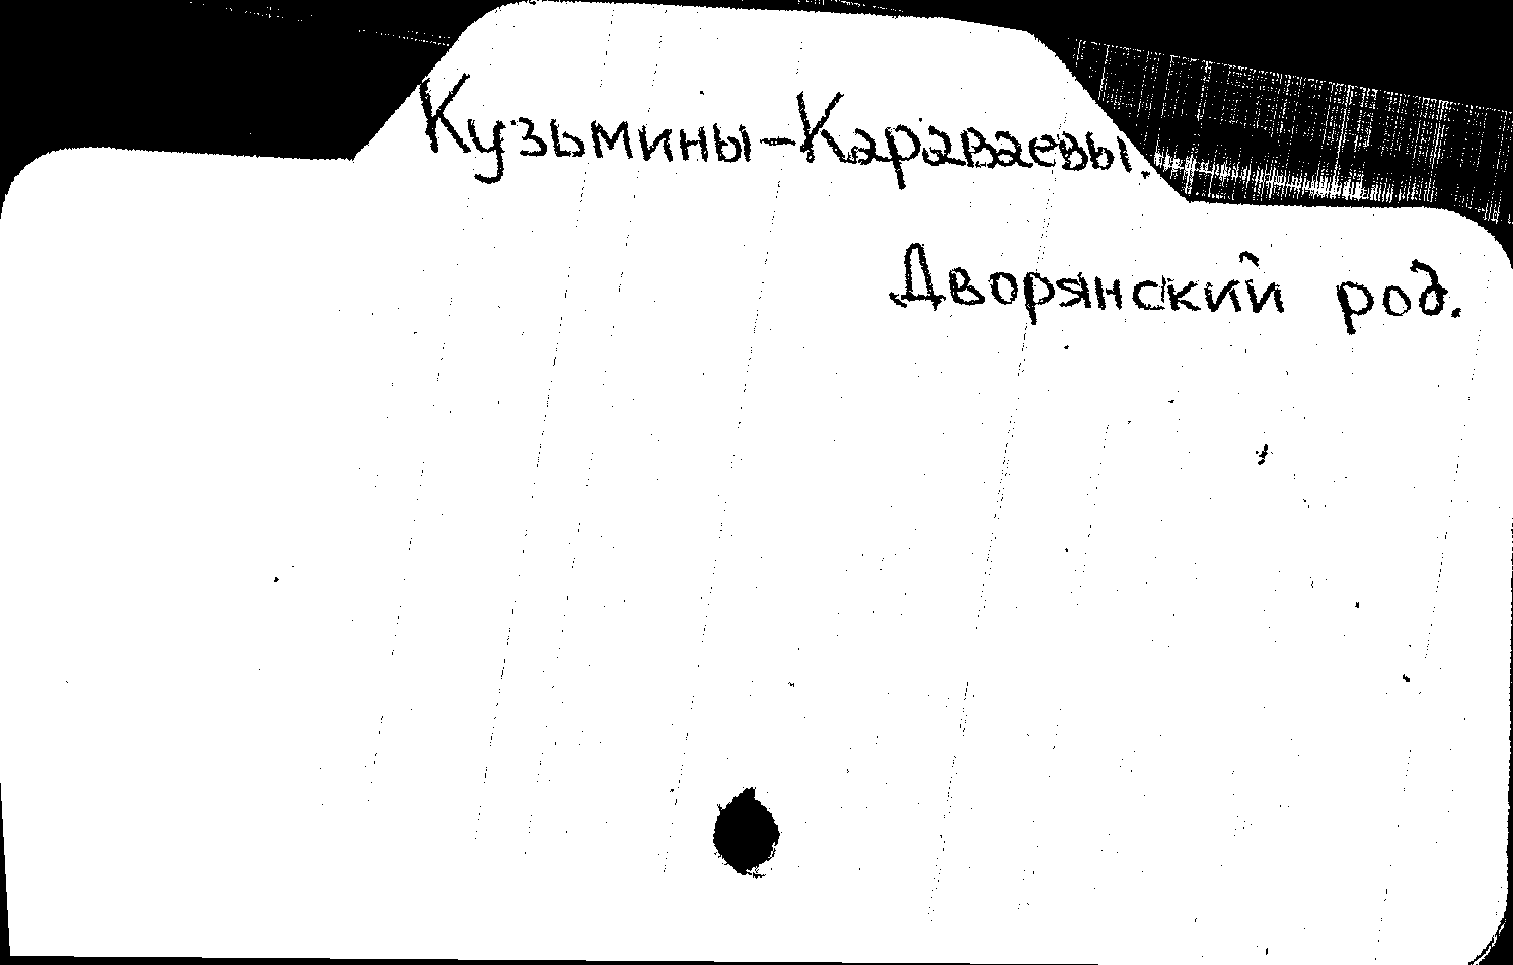 Кузьмины-Караваевы.
Дворянский род.